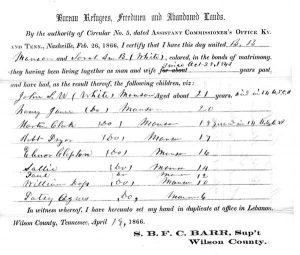 Bureau Refugees, Freedmen and Abandoned Lands.
By the authority of Circular No. 5, dated Assistant Commissioner's Office Ky.
and Tenn., Nashville, Feb. 26, 1866, I certify that I have this day united B. H.
Manson and Sarah Ann B (White), colored, in the bonds of matrimony,
they having been living together as man and wife for about since Oct 31, 1843 years past,
and have had, as the result thereof, the following children, viz:
John L. W. (White) Manson aged about 21
Nancy Jane (Do) Manson 20
Martin Clark (Do) Manson
Robt Pryor (Do) Manson 17
Elenor Clopton (Do) Manson 16
Sallie (Do) Manson 14
Manson 12
William (Do) Manson 10
Patsy Agness Do, Manson 6
In witness whereof, I have hereunto set my hand in duplicate at office in Lebanon,
Wilson County, Tennessee, April 19, 1866.
S. B. F. C. BARR, Sup't
Wilson County.